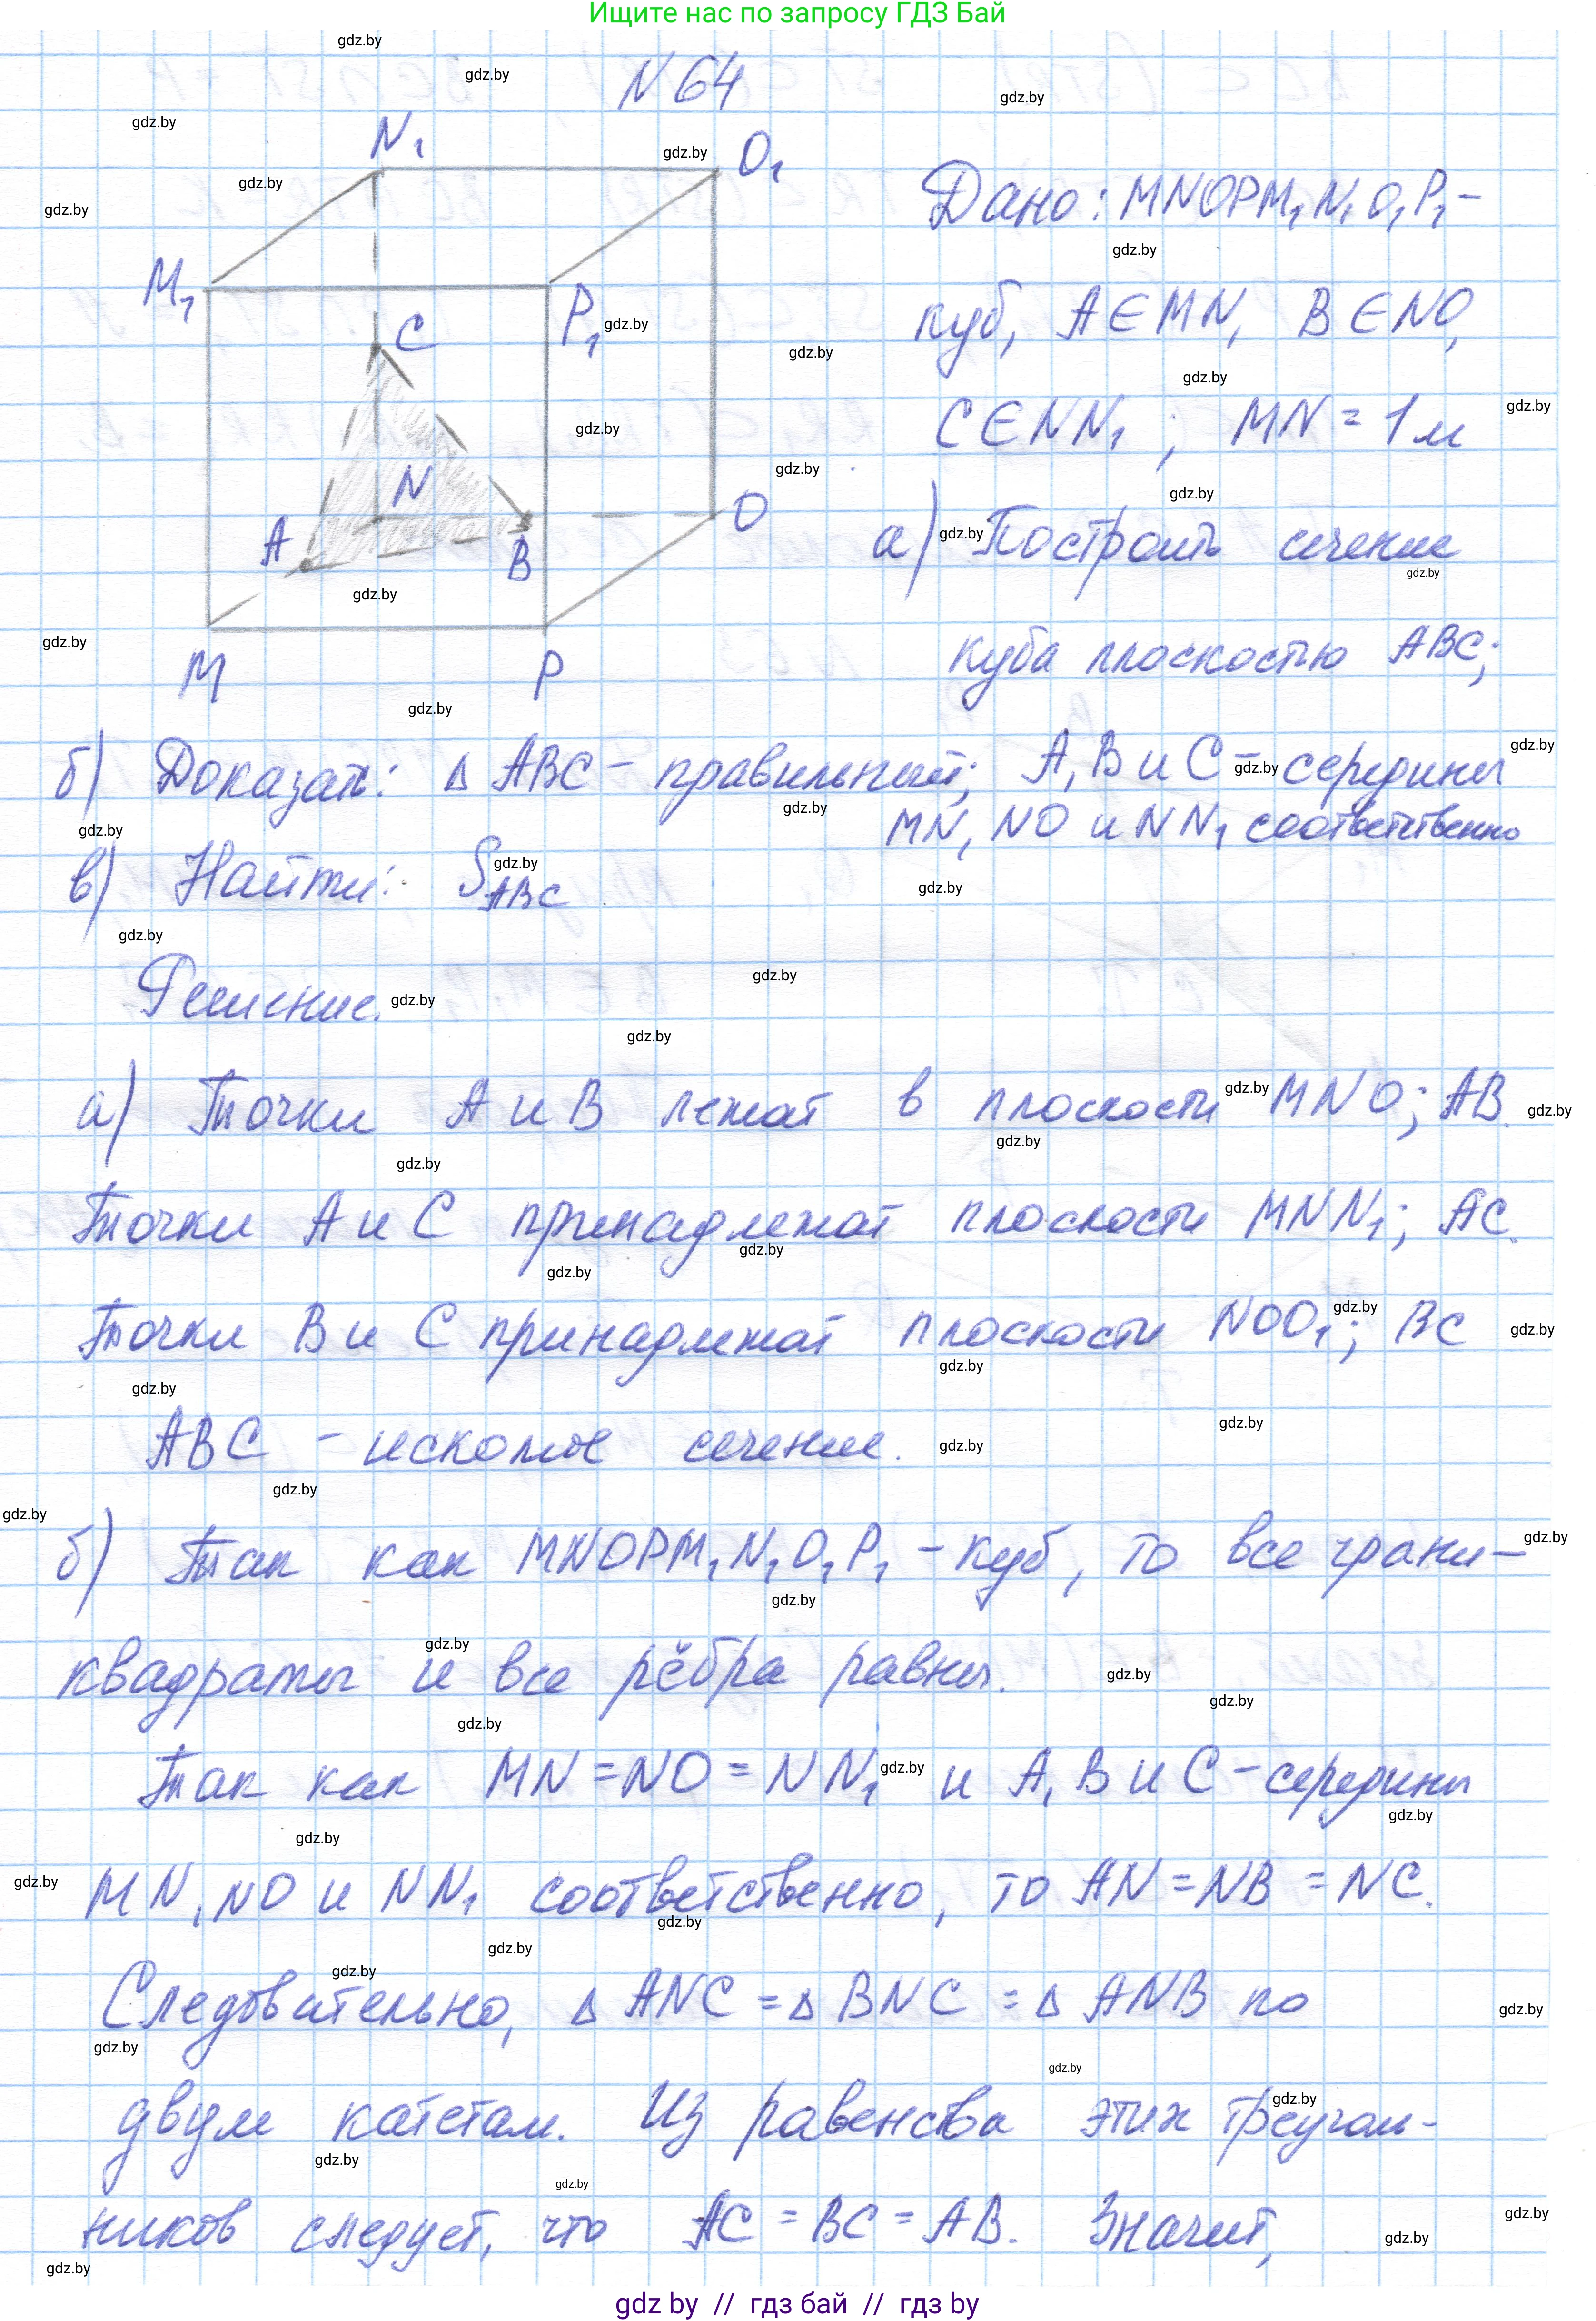 Ищите нас по запросу ГДЗ Бай
N 64
N₁
O₁
M₁
P₁
C
N
A
B
O
M
P
Дано: MNOPM₁N₁O₁P₁ –
куб, A∈MN, B∈NO,
C∈NN₁; MN = 1м
а) Построить сечение
куба плоскостью ABC;
б) Доказать: Δ ABC – правильный; A, B и C – середины
MN, NO и NN₁ соответственно
в) Найти: S_ABC
Решение.
а) Точки A и B лежат в плоскости MNO; AB.
Точки A и C принадлежат плоскости MNN₁; AC.
Точки B и C принадлежат плоскости NOO₁; BC
ABC – искомое сечение.
б) Так как MNOPM₁N₁O₁P₁ – куб, то все грани –
квадраты и все рёбра равны.
Так как MN = NO = NN₁ и A, B и C – середины
MN, NO и NN₁ соответственно, то AN = NB = NC.
Следовательно, Δ ANC = Δ BNC = Δ ANB по
двум катетам. Из равенства этих треуголь-
ников следует, что AC = BC = AB. Значит,
gdz by // гдз бай // гдз by